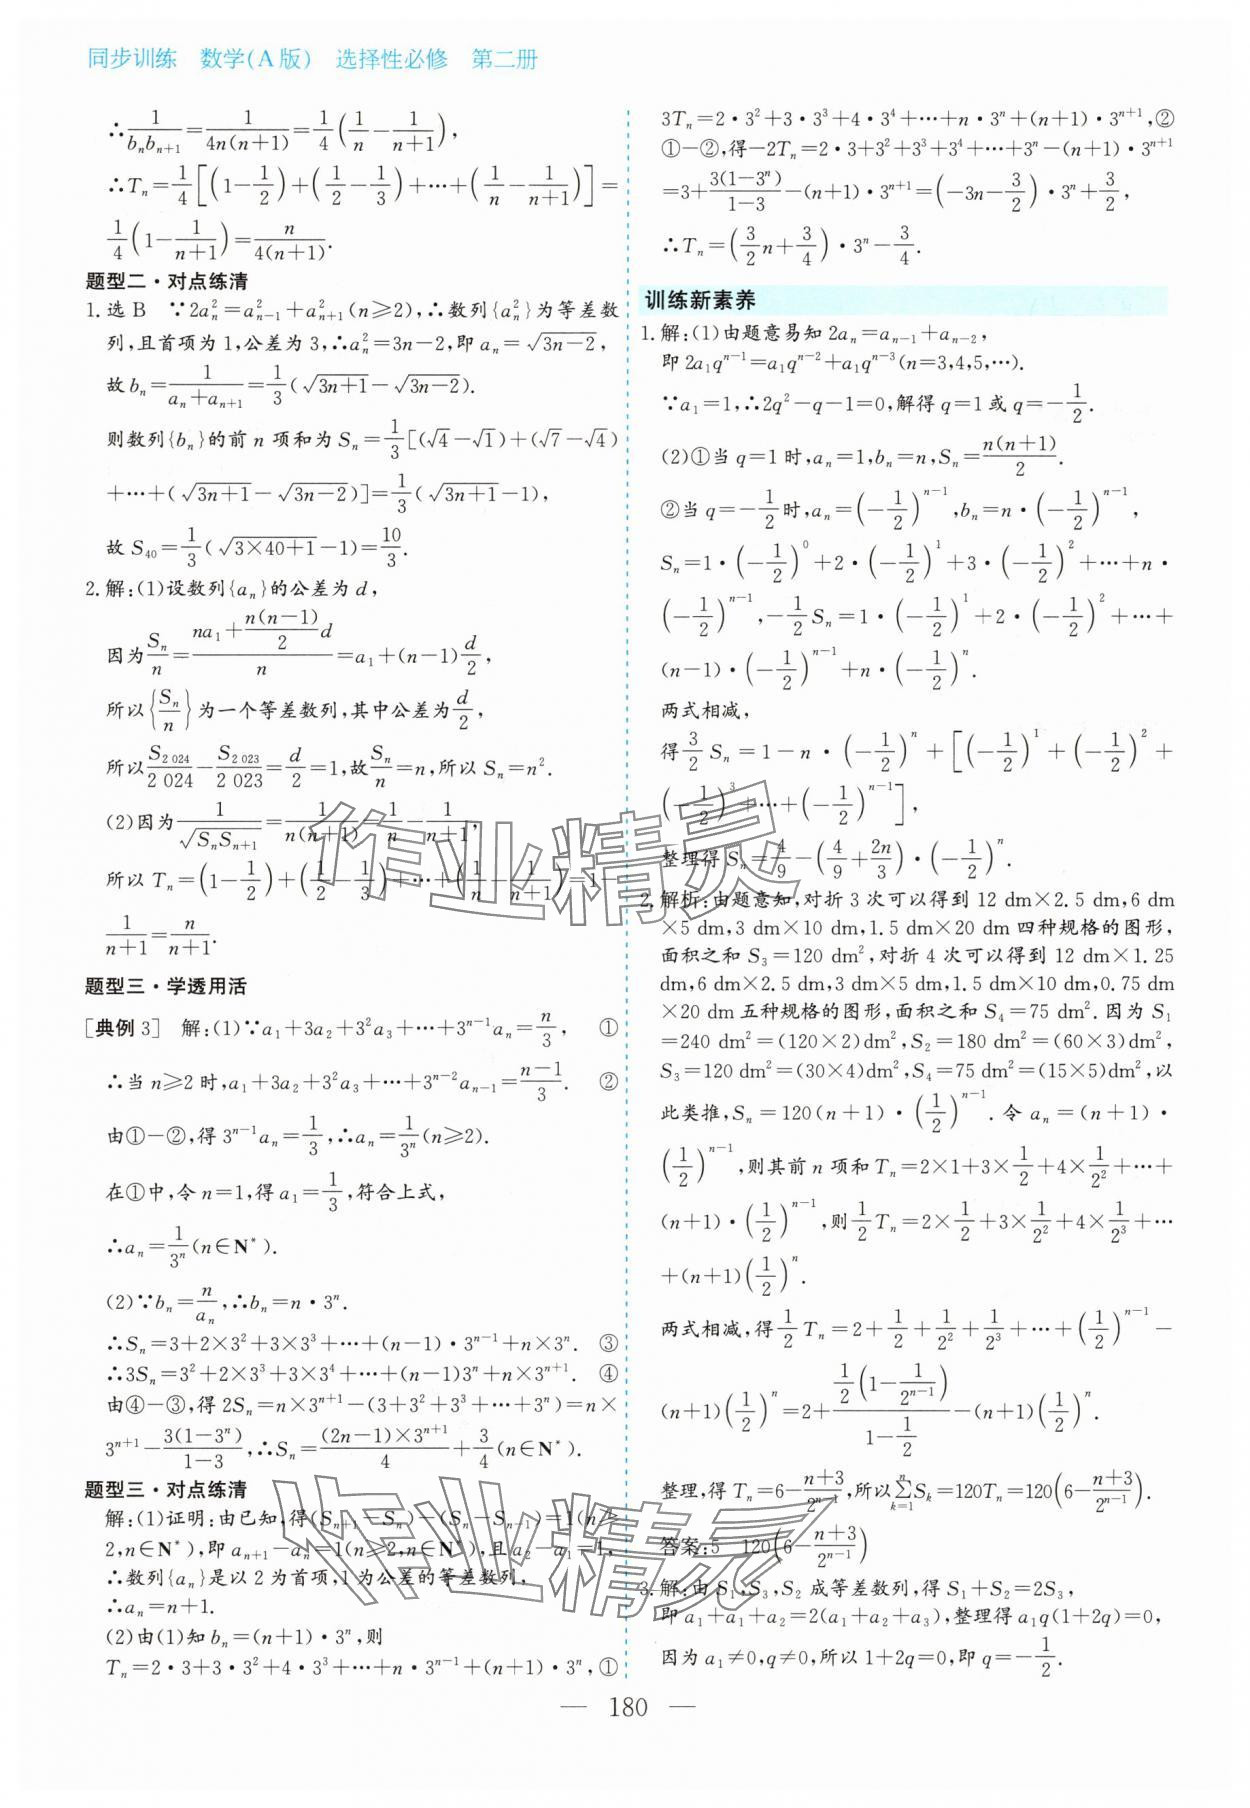 同步训练 数学(A版) 选择性必修 第二册
∴1/(b_n b_{n+1})=1/(4n(n+1))=1/4(1/n-1/(n+1)),
∴T_n=1/4[(1-1/2)+(1/2-1/3)+⋯+(1/n-1/(n+1))]=
1/4(1-1/(n+1))=n/(4(n+1)).
题型二·对点练清
1.选B ∵2a_n^2=a_{n-1}^2+a_{n+1}^2(n≥2),∴数列{a_n^2}为等差数
列,且首项为1,公差为3,∴a_n^2=3n-2,即a_n=√(3n-2),
故b_n=1/(a_n+a_{n+1})=1/3(√(3n+1)-√(3n-2)).
则数列{b_n}的前n项和为S_n=1/3[(√4-√1)+(√7-√4)
+⋯+(√(3n+1)-√(3n-2))]=1/3(√(3n+1)-1),
故S_40=1/3(√(3×40+1)-1)=10/3.
2.解:(1)设数列{a_n}的公差为d,
因为S_n/n=(na_1+(n(n-1)/2)d)/n=a_1+(n-1)d/2,
所以{S_n/n}为一个等差数列,其中公差为d/2,
所以S_{2 024}/2 024-S_{2 023}/2 023=d/2=1,故S_n/n=n,所以S_n=n^2.
(2)因为1/√(S_nS_{n+1})=1/(n(n+1))=1/n-1/(n+1),
所以T_n=(1-1/2)+(1/2-1/3)+⋯+(1/n-1/(n+1))=1-
1/(n+1)=n/(n+1).
题型三·学透用活
[典例3] 解:(1)∵a_1+3a_2+3^2a_3+⋯+3^{n-1}a_n=n/3, ①
∴当n≥2时,a_1+3a_2+3^2a_3+⋯+3^{n-2}a_{n-1}=(n-1)/3. ②
由①-②,得3^{n-1}a_n=1/3,∴a_n=1/3^n(n≥2).
在①中,令n=1,得a_1=1/3,符合上式,
∴a_n=1/3^n(n∈N*).
(2)∵b_n=n/a_n,∴b_n=n·3^n.
∴S_n=3+2×3^2+3×3^3+⋯+(n-1)·3^{n-1}+n×3^n. ③
∴3S_n=3^2+2×3^3+3×3^4+⋯+(n-1)3^n+n×3^{n+1}. ④
由④-③,得2S_n=n×3^{n+1}-(3+3^2+3^3+⋯+3^n)=n×
3^{n+1}-3(1-3^n)/(1-3),∴S_n=(2n-1)×3^{n+1}/4+3/4(n∈N*).
题型三·对点练清
解:(1)证明:由已知,得(S_{n+1}-S_n)-(S_n-S_{n-1})=1(n≥
2,n∈N*),即a_{n+1}-a_n=1(n≥2,n∈N*),且a_2-a_1=1,
∴数列{a_n}是以2为首项,1为公差的等差数列,
∴a_n=n+1.
(2)由(1)知b_n=(n+1)·3^n,则
T_n=2·3+3·3^2+4·3^3+⋯+n·3^{n-1}+(n+1)·3^n,①
3T_n=2·3^2+3·3^3+4·3^4+⋯+n·3^n+(n+1)·3^{n+1},②
①-②,得-2T_n=2·3+3^2+3^3+3^4+⋯+3^n-(n+1)·3^{n+1}
=3+3(1-3^n)/(1-3)-(n+1)·3^{n+1}=(-3n-3/2)·3^n+3/2,
∴T_n=(3/2n+3/4)·3^n-3/4.
训练新素养
1.解:(1)由题意易知2a_n=a_{n-1}+a_{n-2},
即2a_1q^{n-1}=a_1q^{n-2}+a_1q^{n-3}(n=3,4,5,⋯).
∵a_1=1,∴2q^2-q-1=0,解得q=1或q=-1/2.
(2)①当q=1时,a_n=1,b_n=n,S_n=n(n+1)/2.
②当q=-1/2时,a_n=(-1/2)^{n-1},b_n=n·(-1/2)^{n-1},
S_n=1·(-1/2)^0+2·(-1/2)^1+3·(-1/2)^2+⋯+n·
(-1/2)^{n-1},-1/2S_n=1·(-1/2)^1+2·(-1/2)^2+⋯+
(n-1)·(-1/2)^{n-1}+n·(-1/2)^n.
两式相减,
得3/2S_n=1-n·(-1/2)^n+[(-1/2)^1+(-1/2)^2+
(-1/2)^3+⋯+(-1/2)^{n-1}],
整理得S_n=4/9-(4/9+2n/3)·(-1/2)^n.
2.解析:由题意知,对折3次可以得到12 dm×2.5 dm,6 dm
×5 dm,3 dm×10 dm,1.5 dm×20 dm四种规格的图形,
面积之和S_3=120 dm^2,对折4次可以得到12 dm×1.25
dm,6 dm×2.5 dm,3 dm×5 dm,1.5 dm×10 dm,0.75 dm
×20 dm五种规格的图形,面积之和S_4=75 dm^2.因为S_1
=240 dm^2=(120×2)dm^2,S_2=180 dm^2=(60×3)dm^2,
S_3=120 dm^2=(30×4)dm^2,S_4=75 dm^2=(15×5)dm^2,以
此类推,S_n=120(n+1)·(1/2)^{n-1}.令a_n=(n+1)·
(1/2)^{n-1},则其前n项和T_n=2×1+3×1/2+4×1/2^2+⋯+
(n+1)·(1/2)^{n-1},则1/2T_n=2×1/2+3×1/2^2+4×1/2^3+⋯
+(n+1)(1/2)^n.
两式相减,得1/2T_n=2+1/2+1/2^2+1/2^3+⋯+(1/2)^{n-1}-
(n+1)(1/2)^n=2+(1/2(1-1/2^{n-1}))/(1-1/2)-(n+1)(1/2)^n.
整理,得T_n=6-(n+3)/2^{n-1},所以∑_{k=1}^{n}S_k=120T_n=120(6-(n+3)/2^{n-1}).
答案:5 120(6-(n+3)/2^{n-1})
3.解:由S_1,S_3,S_2成等差数列,得S_1+S_2=2S_3,
即a_1+a_1+a_2=2(a_1+a_2+a_3),整理得a_1q(1+2q)=0,
因为a_1≠0,q≠0,所以1+2q=0,即q=-1/2.
— 180 —
作业精灵
作业精灵